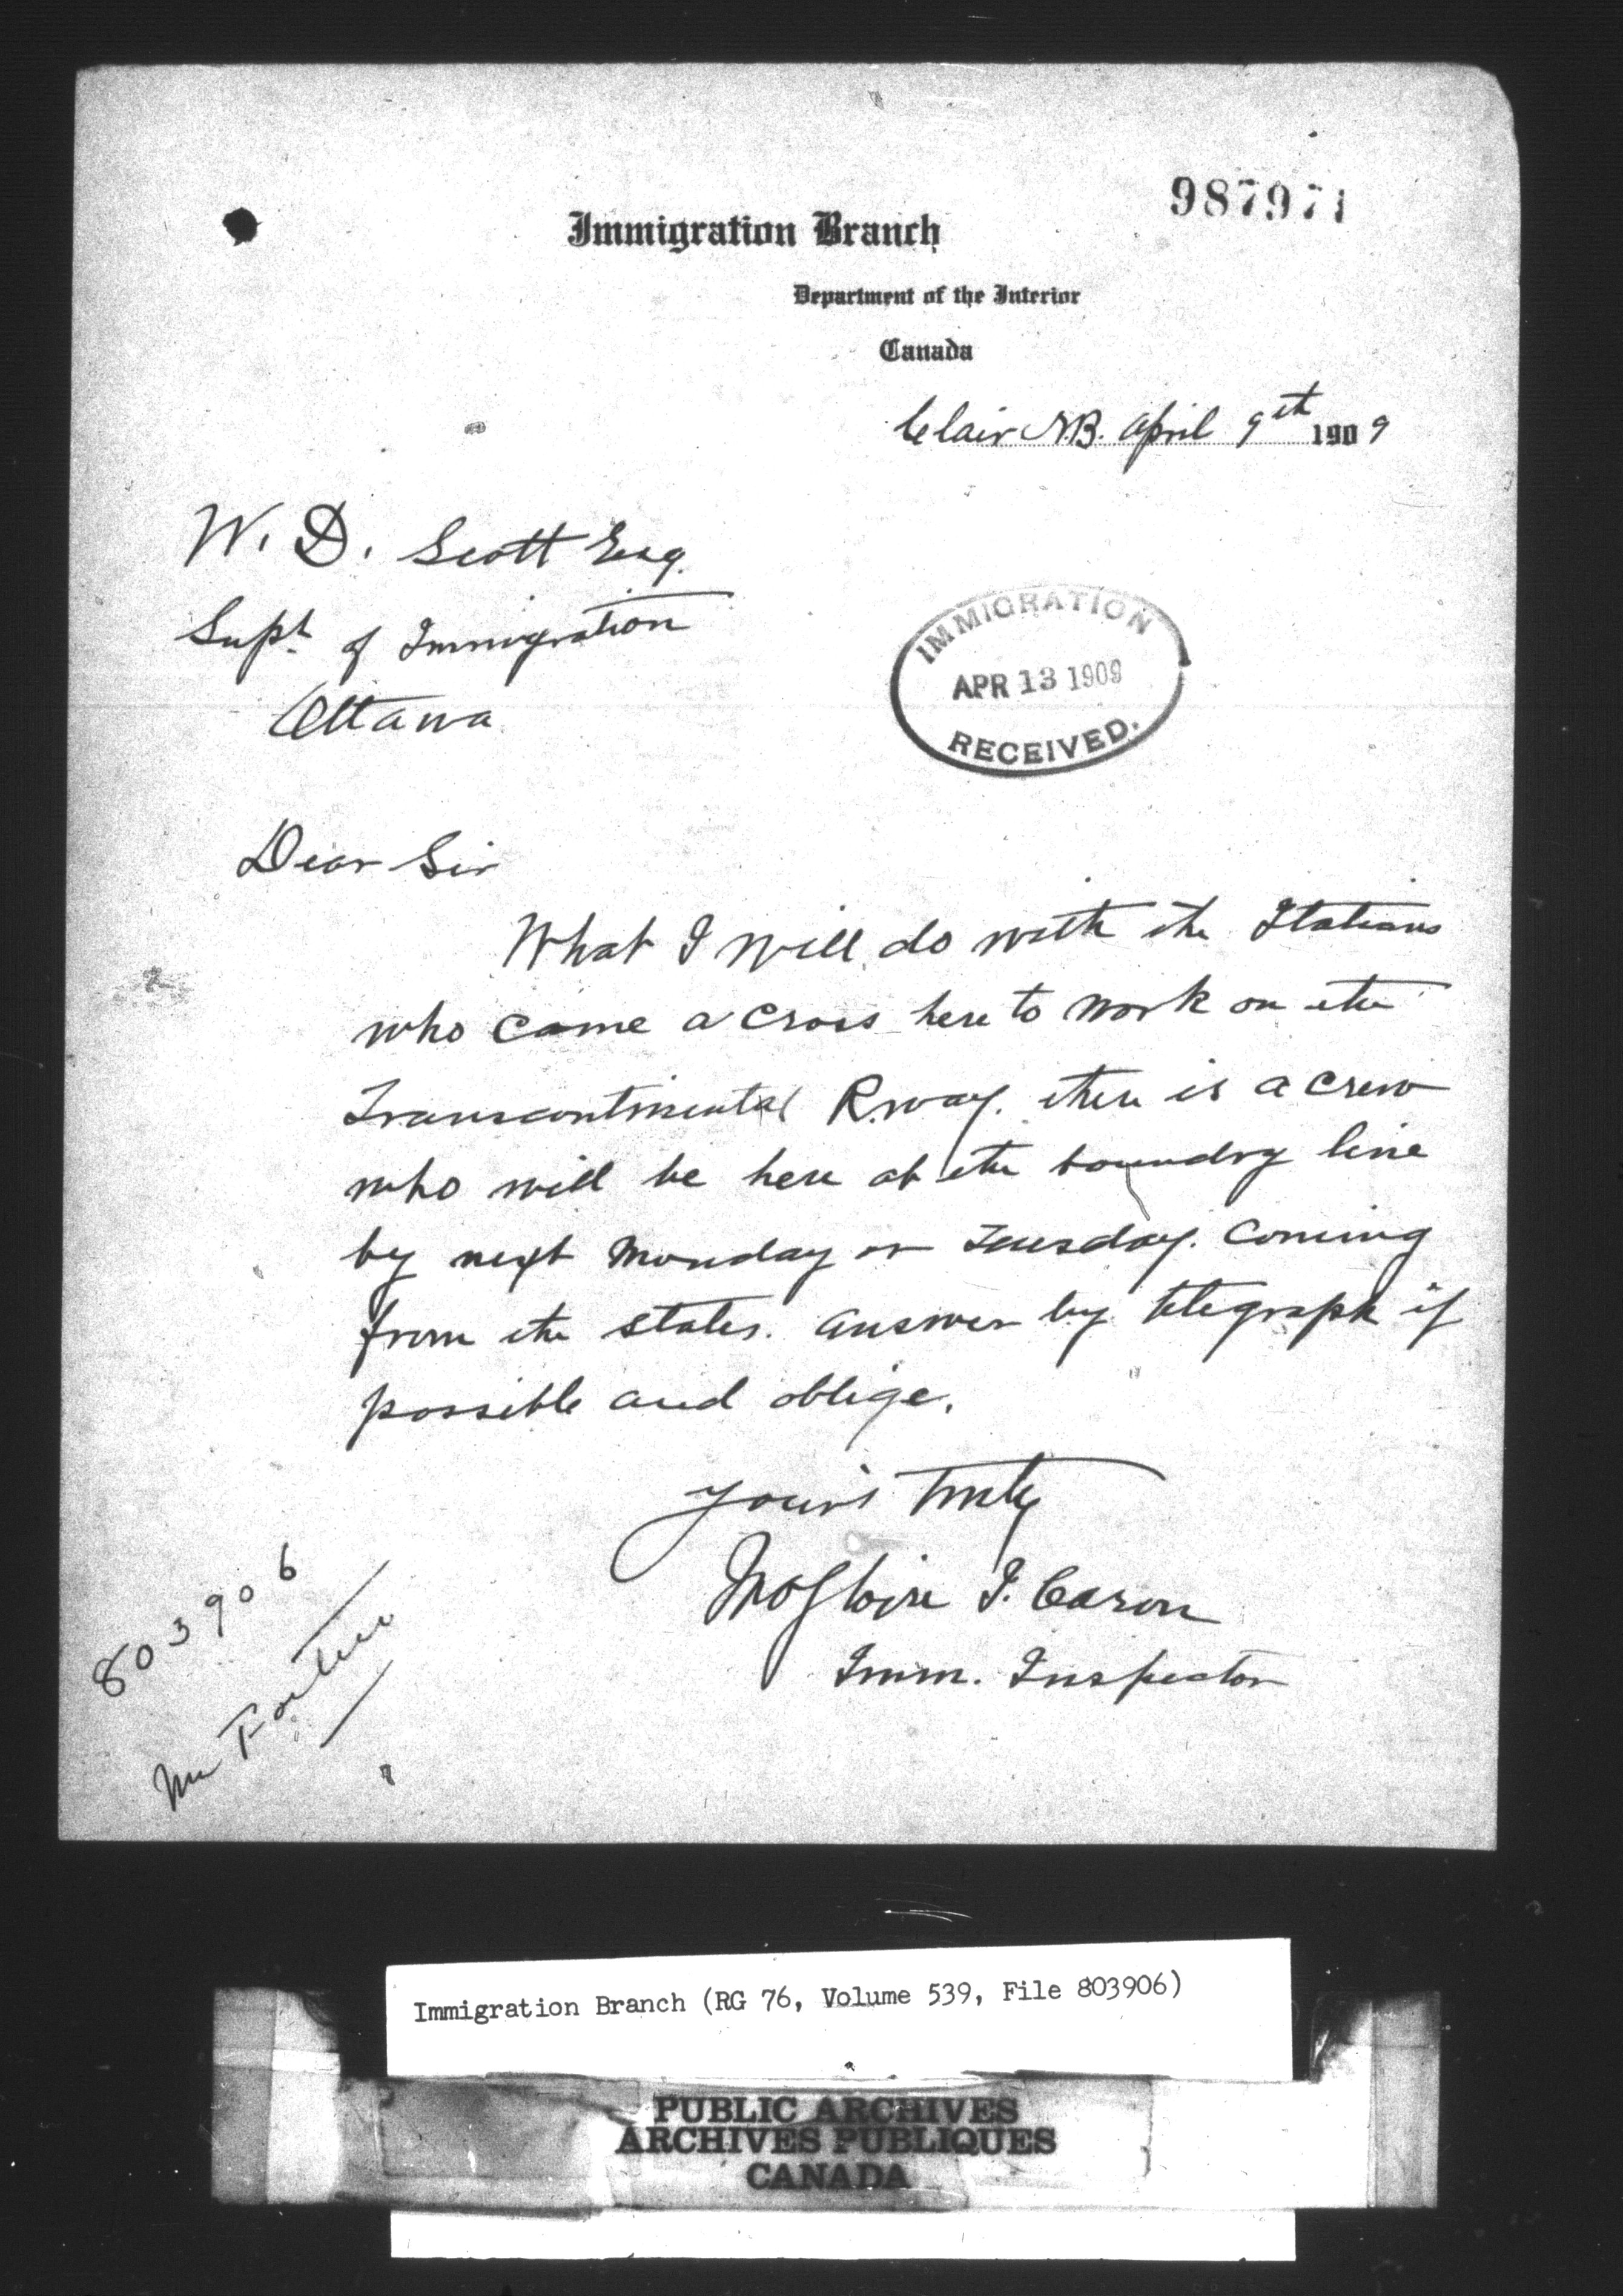 987971
Immigration Branch
Department of the Interior
Canada
Clair N.B. April 9th 1909
W. D. Scott Esq.
Supt. of Immigration
Ottawa
IMMIGRATION
APR 13 1909
RECEIVED.
Dear Sir
What I will do with the Italians
who come a cross here to work on the
Transcontinental R.way. there is a crew
who will be here at the boundry line
by next Monday or Tuesday. Coming
from the states. answer by telegraph if
possible and oblige.
yours truly
J. Caron
Imm. Inspector
803906
Mr Fortier
Immigration Branch (RG 76, Volume 539, File 803906)
PUBLIC ARCHIVES
ARCHIVES PUBLIQUES
CANADA